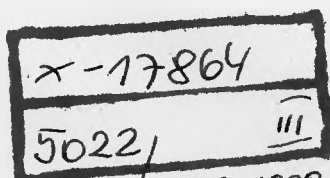 x-17864
5022, III